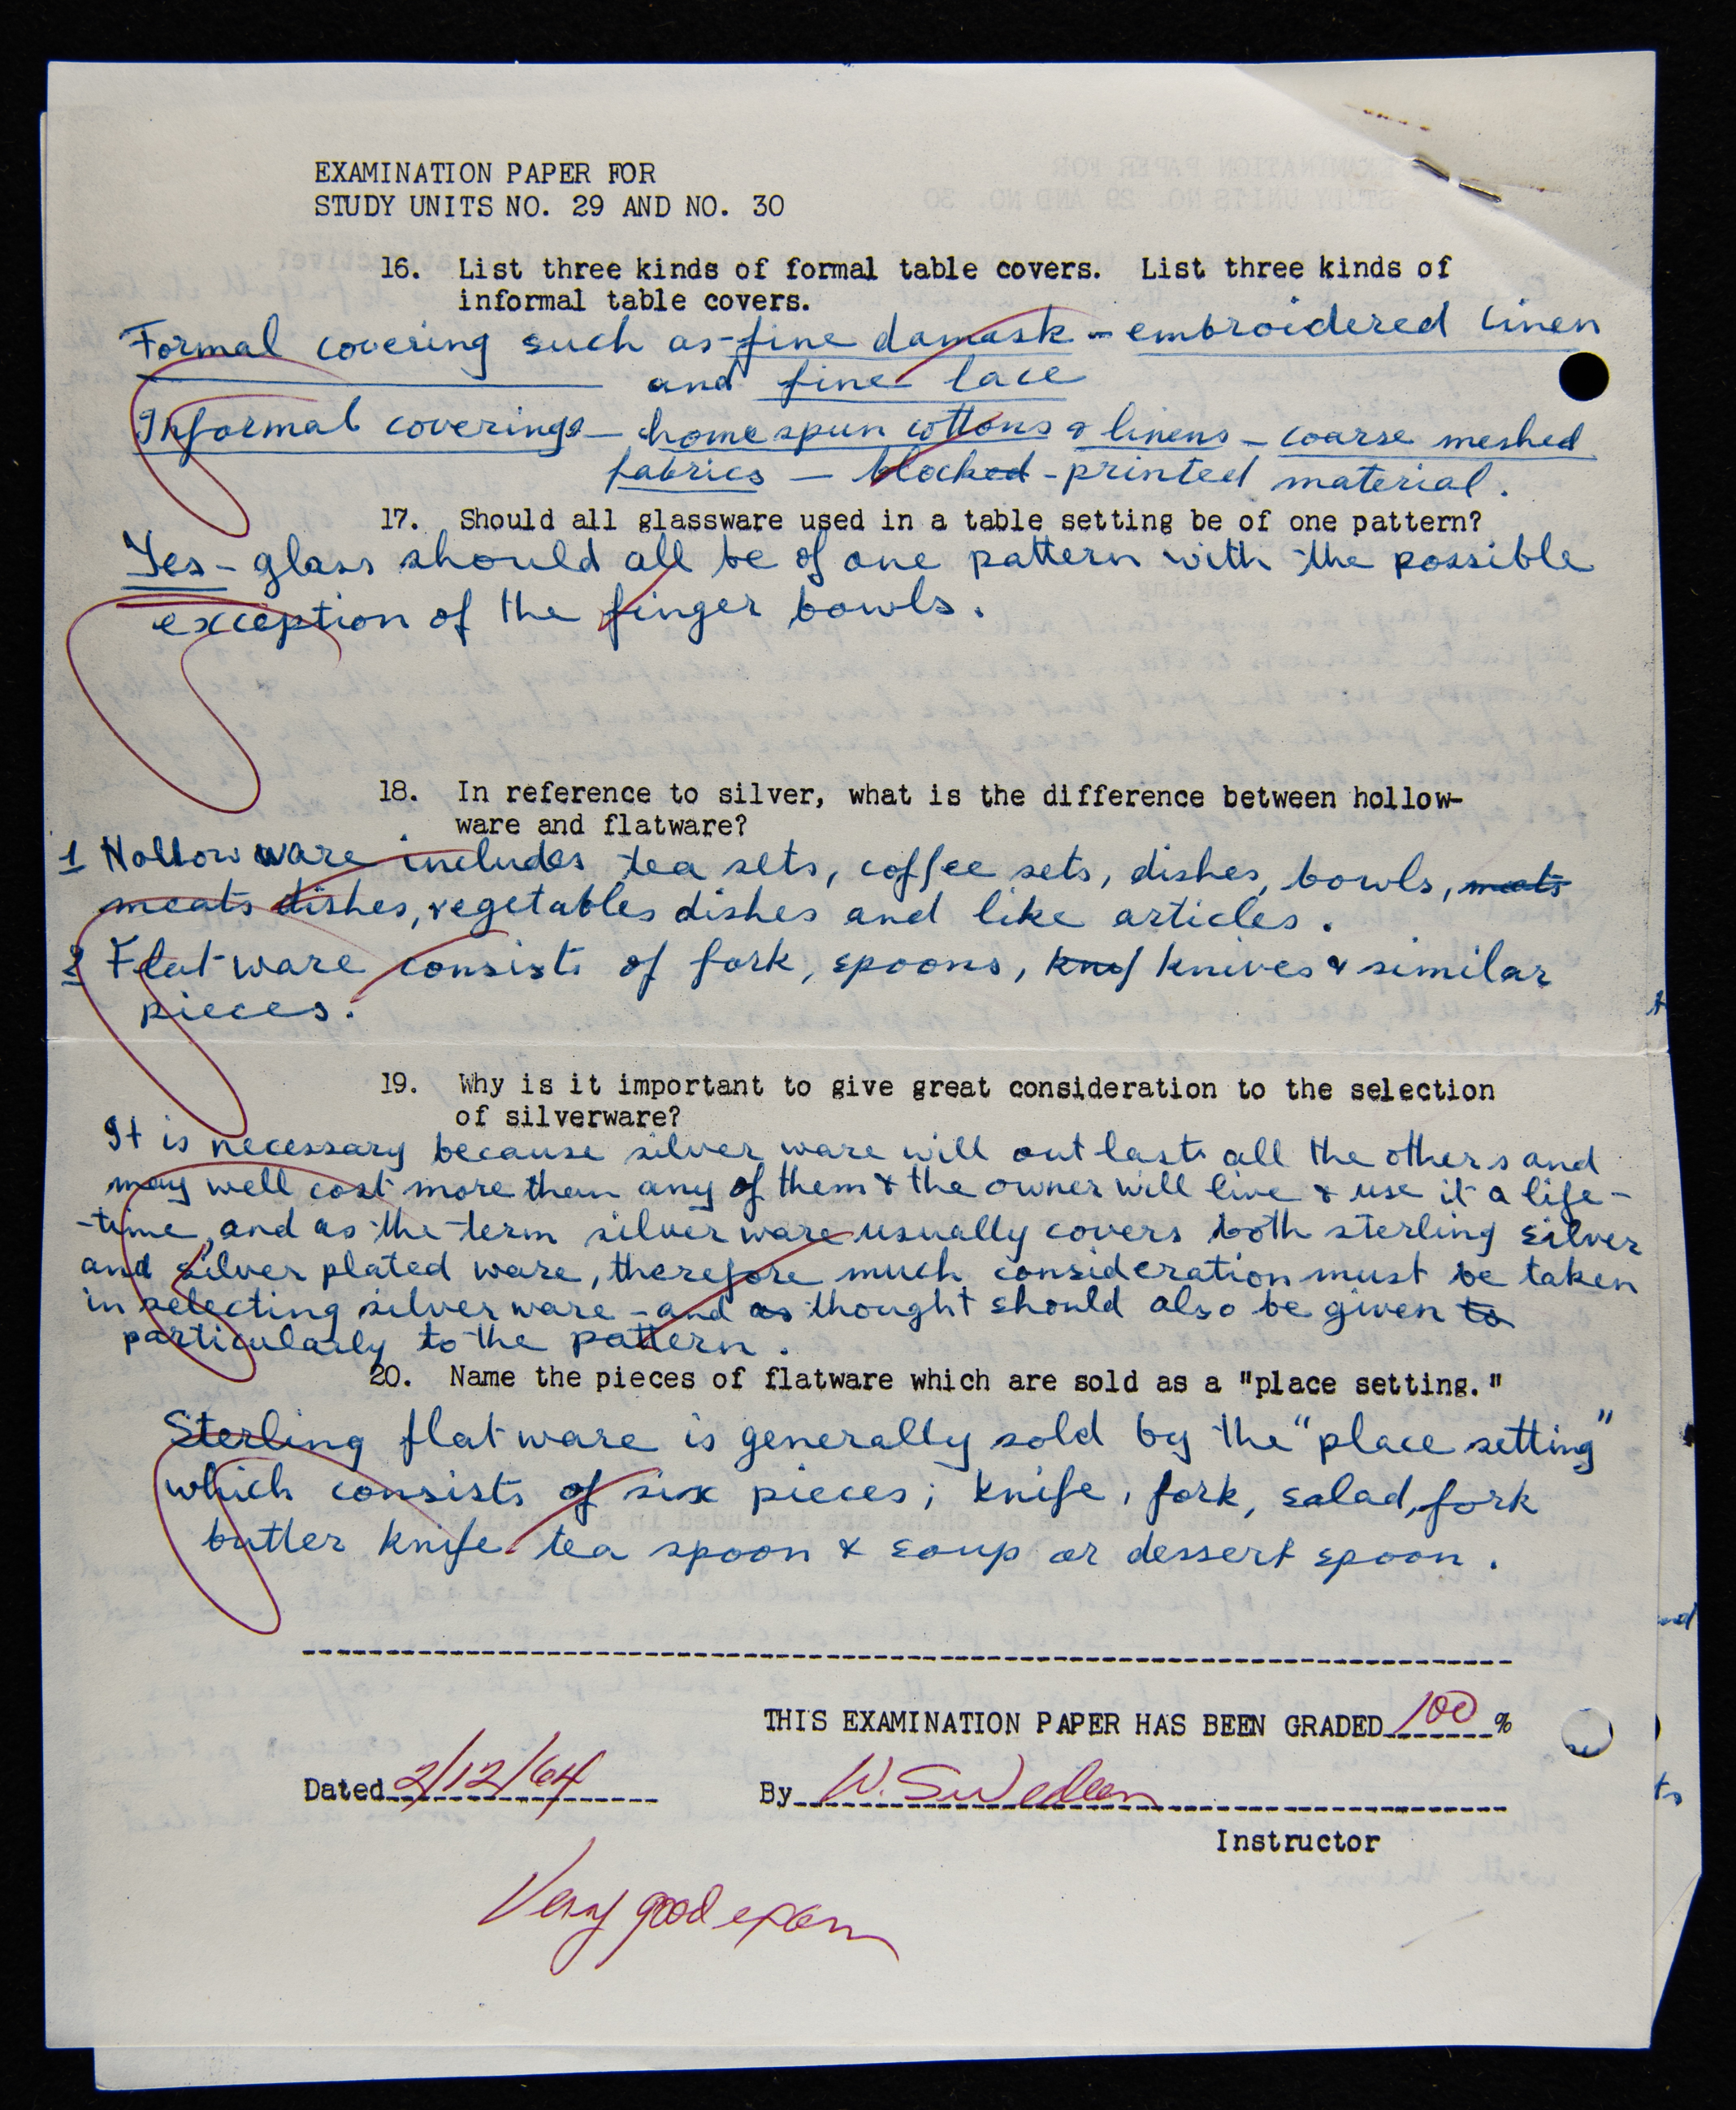 EXAMINATION PAPER FOR
STUDY UNITS NO. 29 AND NO. 30
16. List three kinds of formal table covers. List three kinds of
informal table covers.
Formal covering such as - fine damask - embroidered linen
and fine lace
Informal coverings - homespun cottons & linens - coarse meshed
fabrics - blocked - printed material.
17. Should all glassware used in a table setting be of one pattern?
Yes - glass should all be of one pattern with the possible
exception of the finger bowls.
18. In reference to silver, what is the difference between hollow-
ware and flatware?
1 Hollow ware includes tea sets, coffee sets, dishes, bowls, meats
meats dishes, vegetables dishes and like articles.
2 Flat ware consists of fork, spoons, knif knives & similar
pieces.
19. Why is it important to give great consideration to the selection
of silverware?
It is necessary because silver ware will out lasts all the others and
may well cost more than any of them & the owner will live & use it a life-
-time, and as the term silver ware usually covers both sterling silver
and silver plated ware, therefore much consideration must be taken
in selecting silver ware - and as thought should also be given to
particularly to the pattern.
20. Name the pieces of flatware which are sold as a "place setting."
Sterling flat ware is generally sold by the "place setting"
which consists of six pieces; knife, fork, salad, fork
butter knife tea spoon & soup or dessert spoon.
THIS EXAMINATION PAPER HAS BEEN GRADED 100 %
Dated 2/12/64 By W. Swedeen
Instructor
Very good exam